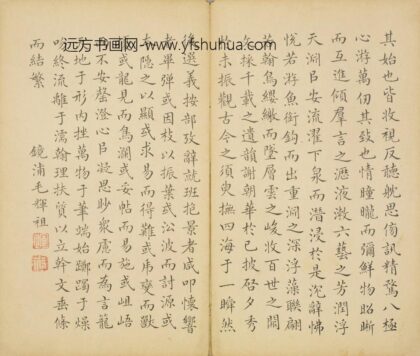 远方书画网-www.yfshuhua.com
其始也皆收視反聽耽思傍訊精騖八極
心游萬仞其致也情曈曨而彌鮮物昭晰
而互進傾羣言之瀝液漱六藝之芳潤浮
天淵以安流濯下泉而潛浸於是沉辭怫
悅若游魚銜鉤而出重淵之深浮藻聯翩
若翰鳥纓繳而墜層雲之峻收百世之闕
文採千載之遺韻謝朝華於已披啟夕秀
於未振觀古今之須臾撫四海于一瞬然
後選義按部攷辭就班抱景者咸叩懷響
者畢彈或因枝以振葉或沿波而討源或
本隱之以顯或求易而得難或虎變而獸
擾或龍見而鳥瀾或妥帖而易施或岨峿
而不安罄澄心以凝思眇衆慮而為言籠
天地于形內挫萬物于筆端始躑躅于燥
吻終流離于濡翰理扶質以立幹文垂條
而結繁 鏡浦毛輝祖